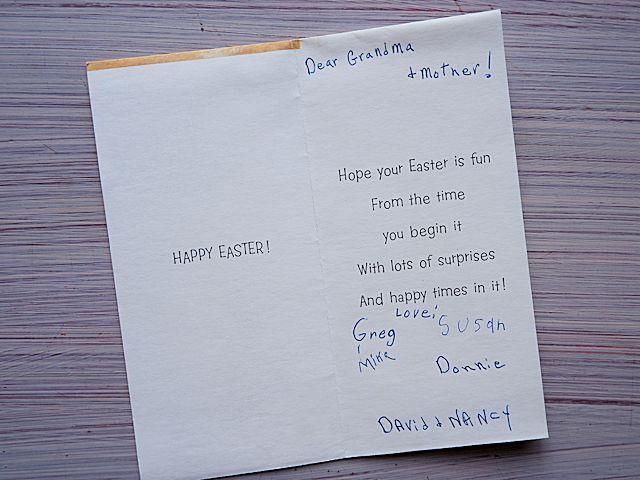 HAPPY EASTER!
Dear Grandma
+ Mother!
Hope your Easter is fun
From the time
you begin it
With lots of surprises
And happy times in it!
Love,
Greg Susan
Mike
Donnie
David & NANCY